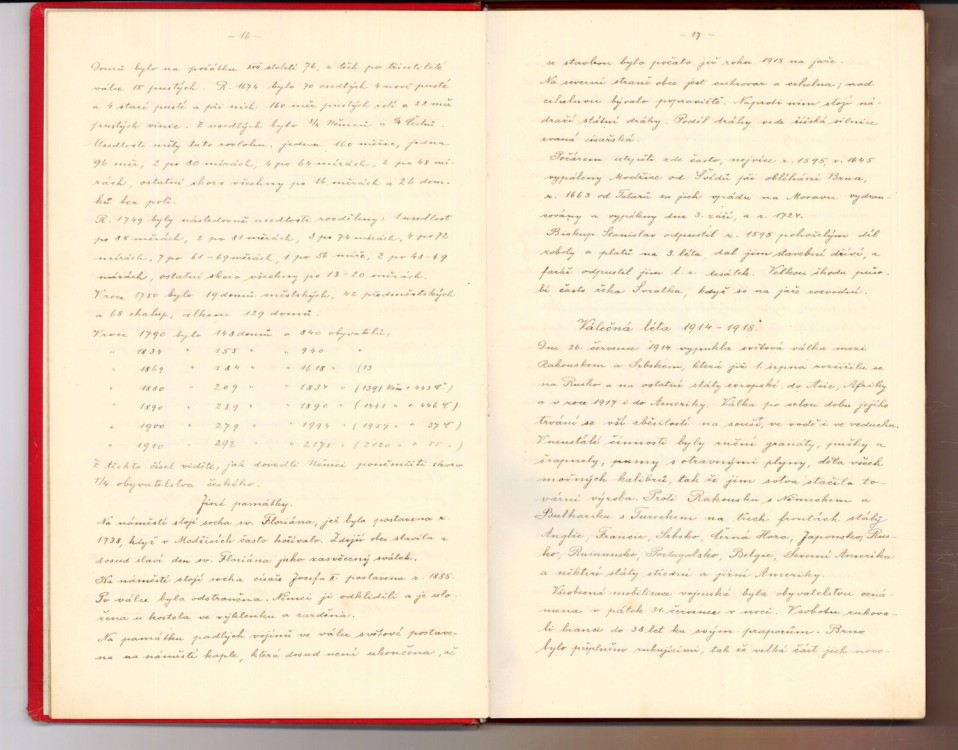 - 16 -
Domů bylo na počátku XVII století 76, z těch po třicetileté
válce 15 pustých. R. 1674 bylo 70 osedlých, 4 nově pusté
a 4 staré pusté a při nich 160 měr pustých polí a 22 měr
pustých vinic. Z usedlých bylo 3/4 Němců a 1/4 Čechů.
Usedlosti měly tuto rozlohu: jedna 160 měřic, jedna
96 měr, 2 po 80 mírách, 4 po 64 mírách, 2 po 48 mí-
rách, ostatní skoro všechny po 16 mírách a 26 dom-
ků bez polí.
R. 1749 byly následovně usedlosti rozděleny: 1 usedlost
po 88 mírách, 2 po 81 mírách, 3 po 74 mírách, 4 po 72
mírách, 7 po 61-69 mírách, 1 po 56 míře, 2 po 48-49
mírách, ostatní skoro všechny po 13-20 mírách.
V roce 1750 bylo 19 domů městských, 42 předměstských
a 68 chalup, celkem 129 domů.
V roce 1790 bylo 148 domů a 840 obyvatelů.
" 1834 " 155 " " 940 "
" 1869 " 184 " " 1618 " (13
" 1880 " 209 " " 1834 " (1391 Něm. + 443 Č)
" 1890 " 239 " " 1890 " (1441 " + 446 Č)
" 1900 " 279 " " 1994 " (1957 " + 37 Č)
" 1910 " 292 " " 2175 " (2120 " + 55 ")
Z těchto čísel vidíte, jak dovedli Němci poněmčiti skoro
1/4 obyvatelstva českého.
Jiné památky.
Na náměstí stojí socha sv. Floriána, jež byla postavena r.
1738, když v Modřicích často hořívalo. Zdejší obec slavila a
dosud slaví den sv. Floriána jako zasvěcený svátek.
Na náměstí stojí socha císaře Josefa II. postavena r. 1885.
Po válce byla odstraněna. Němci ji odklidili a je ulo-
žena u kostela ve výklenku a zazděna.
Na památku padlých vojínů ve válce světové postave-
na na náměstí kaple, která dosud není ukončena, ač
- 17 -
se stavbou bylo počato již roku 1913 na jaře.
Na severní straně obce jest cukrovar a cihelna; nad
cihelnou bývalo popraviště. Naproti nim stojí ná-
draží státní dráhy. Podél dráhy vede říšská silnice
zvaná císařská.
Požárem utrpěli zde často, nejvíce r. 1595, r. 1645
vypáleny Modřice od Švédů při obléhání Brna,
r. 1663 od Tatarů za jich vpádu na Moravu vydran-
covány a vypáleny dne 3. září, a r. 1724.
Biskup Stanislav odpustil r. 1595 pohořelým díl
roboty a platů na 3. léta, dal jim stavební dříví, a
farář odpustil jim t. r. desátek. Velkou škodu půso-
bí často řeka Svratka, když se na jaře rozvodní.
Válečná léta 1914-1918.
Dne 26. června 1914 vypukla světová válka mezi
Rakouskem a Srbskem, která již 1. srpna rozšířila se
na Rusko a na ostatní státy evropské, do Asie, Afriky
a v roce 1917 i do Ameriky. Válka po celou dobu jejího
trvání se vší zběsilostí na souši, ve vodě i ve vzduchu.
V neustálé činnosti byly ruční granáty, pušky a
šrapnely, pumy s otravnými plyny, děla všech
možných kalibrů, tak že jim sotva stačila to-
vární výroba. Proti Rakousku s Německem a
Bulharsku s Tureckem na třech frontách státy
Anglie, Francie, Srbsko, Černá Hora, Japonsko, Rus-
ko, Rumunsko, Portugalsko, Belgie, Severní Amerika
a některé státy střední a jižní Ameriky.
Všeobecná mobilisace vojenská byla obyvatelstvu ozná-
mena v pátek 31. července v noci. V sobotu rukova-
li branci do 38 let ku svým praporům. Brno
bylo přeplněno rukujícími, tak že velká část jich noco-